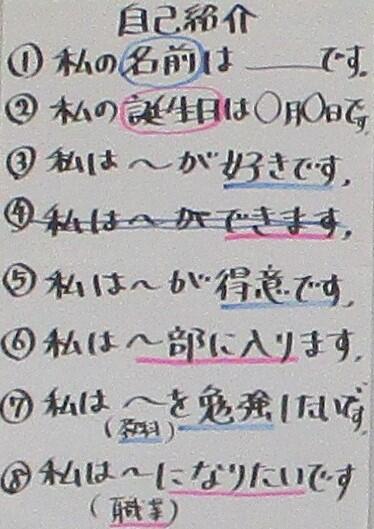 自己紹介
①私の名前は＿＿です。
②私の誕生日は〇月〇日です。
③私は〜が好きです。
④私は〜ができます。
⑤私は〜が得意です。
⑥私は〜部に入ります。
⑦私は〜を勉強したいです。
(教科)
⑧私は〜になりたいです
(職業)